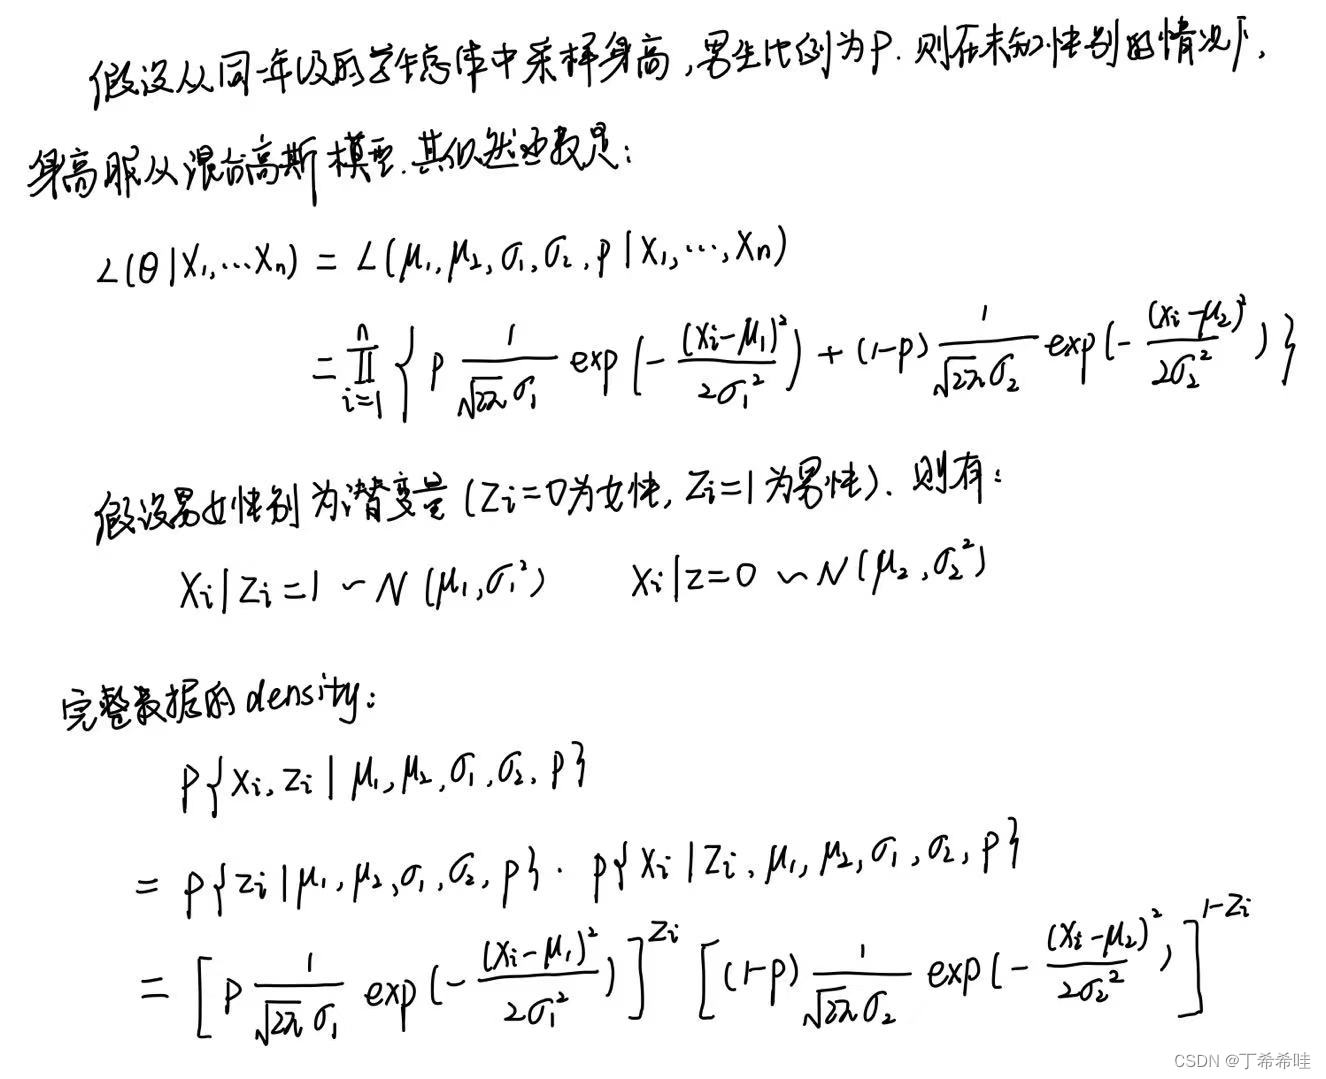 假设从同一年级的学生总体中采样身高,男生比例为P. 则在未知性别的情况下,
身高服从混合高斯模型.其似然函数是:
L(θ|X₁,…Xₙ) = L(μ₁,μ₂,σ₁,σ₂,p|X₁,…,Xₙ)
= ∏ᵢ₌₁ⁿ { p 1/(√2π σ₁) exp(-(Xᵢ-μ₁)²/2σ₁²) + (1-p) 1/(√2π σ₂) exp(-(Xᵢ-μ₂)²/2σ₂²) }
假设男女性别为潜变量(Zᵢ=0为女性,Zᵢ=1为男性). 则有:
Xᵢ|Zᵢ=1 ~ N(μ₁,σ₁²) Xᵢ|Z=0 ~ N(μ₂,σ₂²)
完整数据的density:
P{Xᵢ,Zᵢ|μ₁,μ₂,σ₁,σ₂,p}
= p{Zᵢ|μ₁,μ₂,σ₁,σ₂,p} · p{Xᵢ|Zᵢ,μ₁,μ₂,σ₁,σ₂,p}
= [p 1/(√2π σ₁) exp(-(Xᵢ-μ₁)²/2σ₁²)]^Zᵢ [(1-p) 1/(√2π σ₂) exp(-(Xᵢ-μ₂)²/2σ₂²)]^(1-Zᵢ)
CSDN @丁希希哇